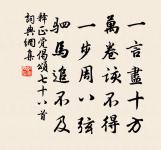 一言盡十方
萬卷談不得
一步周八弦
駟馬追不及
釋正覺偈頌七十八首
詞典網集